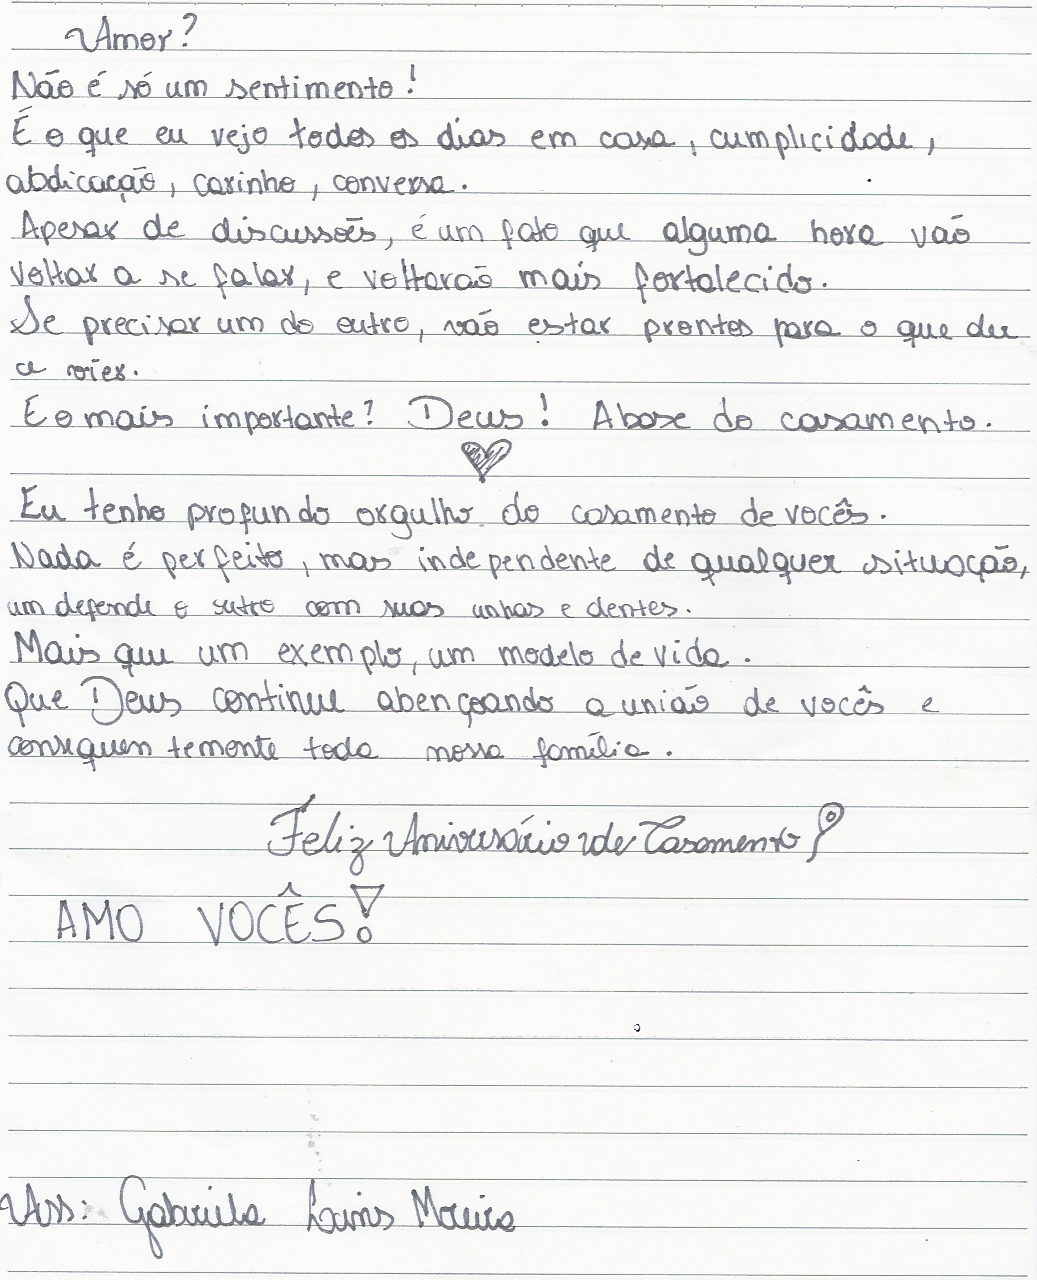 Amor?
Não é só um sentimento!
É o que eu vejo todos os dias em casa, cumplicidade,
abdicação, carinho, conversa.
Apesar de discussões, é um fato que alguma hora vão
voltar a se falar, e voltarão mais fortalecido.
Se precisar um do outro, vão estar prontos para o que der
e vier.
E o mais importante? Deus! A base do casamento.
Eu tenho profundo orgulho do casamento de vocês.
Nada é perfeito, mas independente de qualquer situação,
um defende o outro com suas unhas e dentes.
Mais que um exemplo, um modelo de vida.
Que Deus continue abençoando a união de vocês e
consequentemente toda nossa família.
Feliz Aniversário de Casamento!
AMO VOCÊS!
Ass: Gabriela Moreira